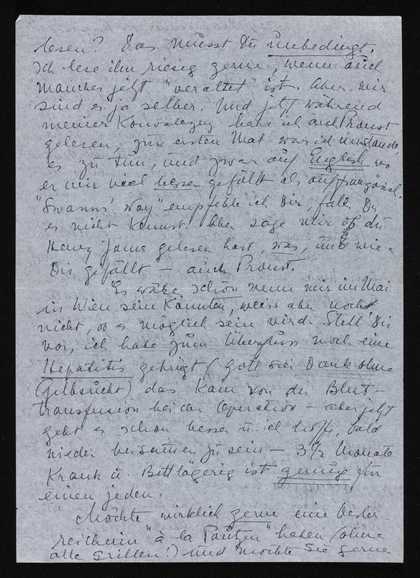 lesen? Das müsst Du unbedingt.
Ich lese ihn riesig gerne, wenn auch
manches jetzt "veraltet" ist. Aber wir
sind es ja selber. Und jetzt während
meiner Konvaleszenz habe ich auch Proust
gelesen, zum ersten Mal war ich imstande
es zu tun, und zwar auf English, wo
er mir viel besser gefällt als auf französ.
"Swann's Way" empfehle ich Dir, falls Du
es nicht kennst. Aber sage mir ob du
Henry James gelesen hast, was, und wie
Dir gefällt – auch Proust.
Es wäre schön wenn wir im Mai
in Wien sein könnten, weiss aber noch
nicht, ob es möglich sein wird. Stell' Dir
vor, ich habe zum Überfluss noch eine
Hepatitis gekriegt (Gott sei Dank ohne
Gelbsucht) das kam von der Blut-
transfusion bei der Operation – aber jetzt
geht es schon besser u. ich hoffe, bald
wieder beisammen zu sein – 3 1/2 Monate
Krank u. Bettlägerig ist genug für
einen jeden.
Möchte wirklich gerne eine
"à la" haben (ohne
alle Grillen!) und möchte Sie gerne